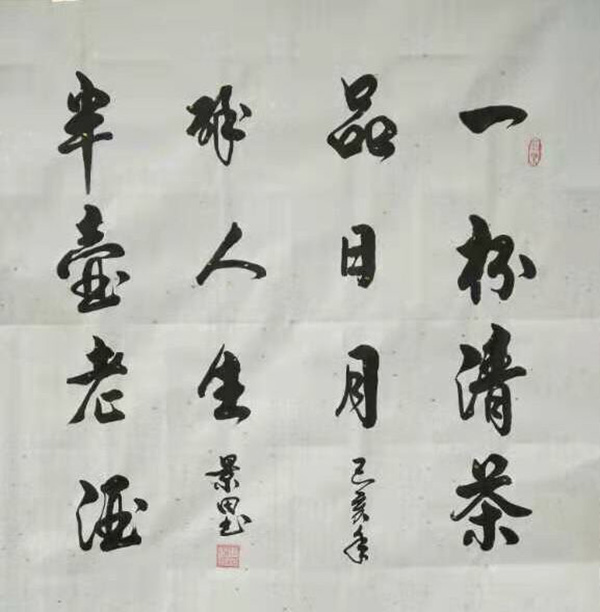 一杯清茶
品日月
己亥年
醉人生
半壺老酒